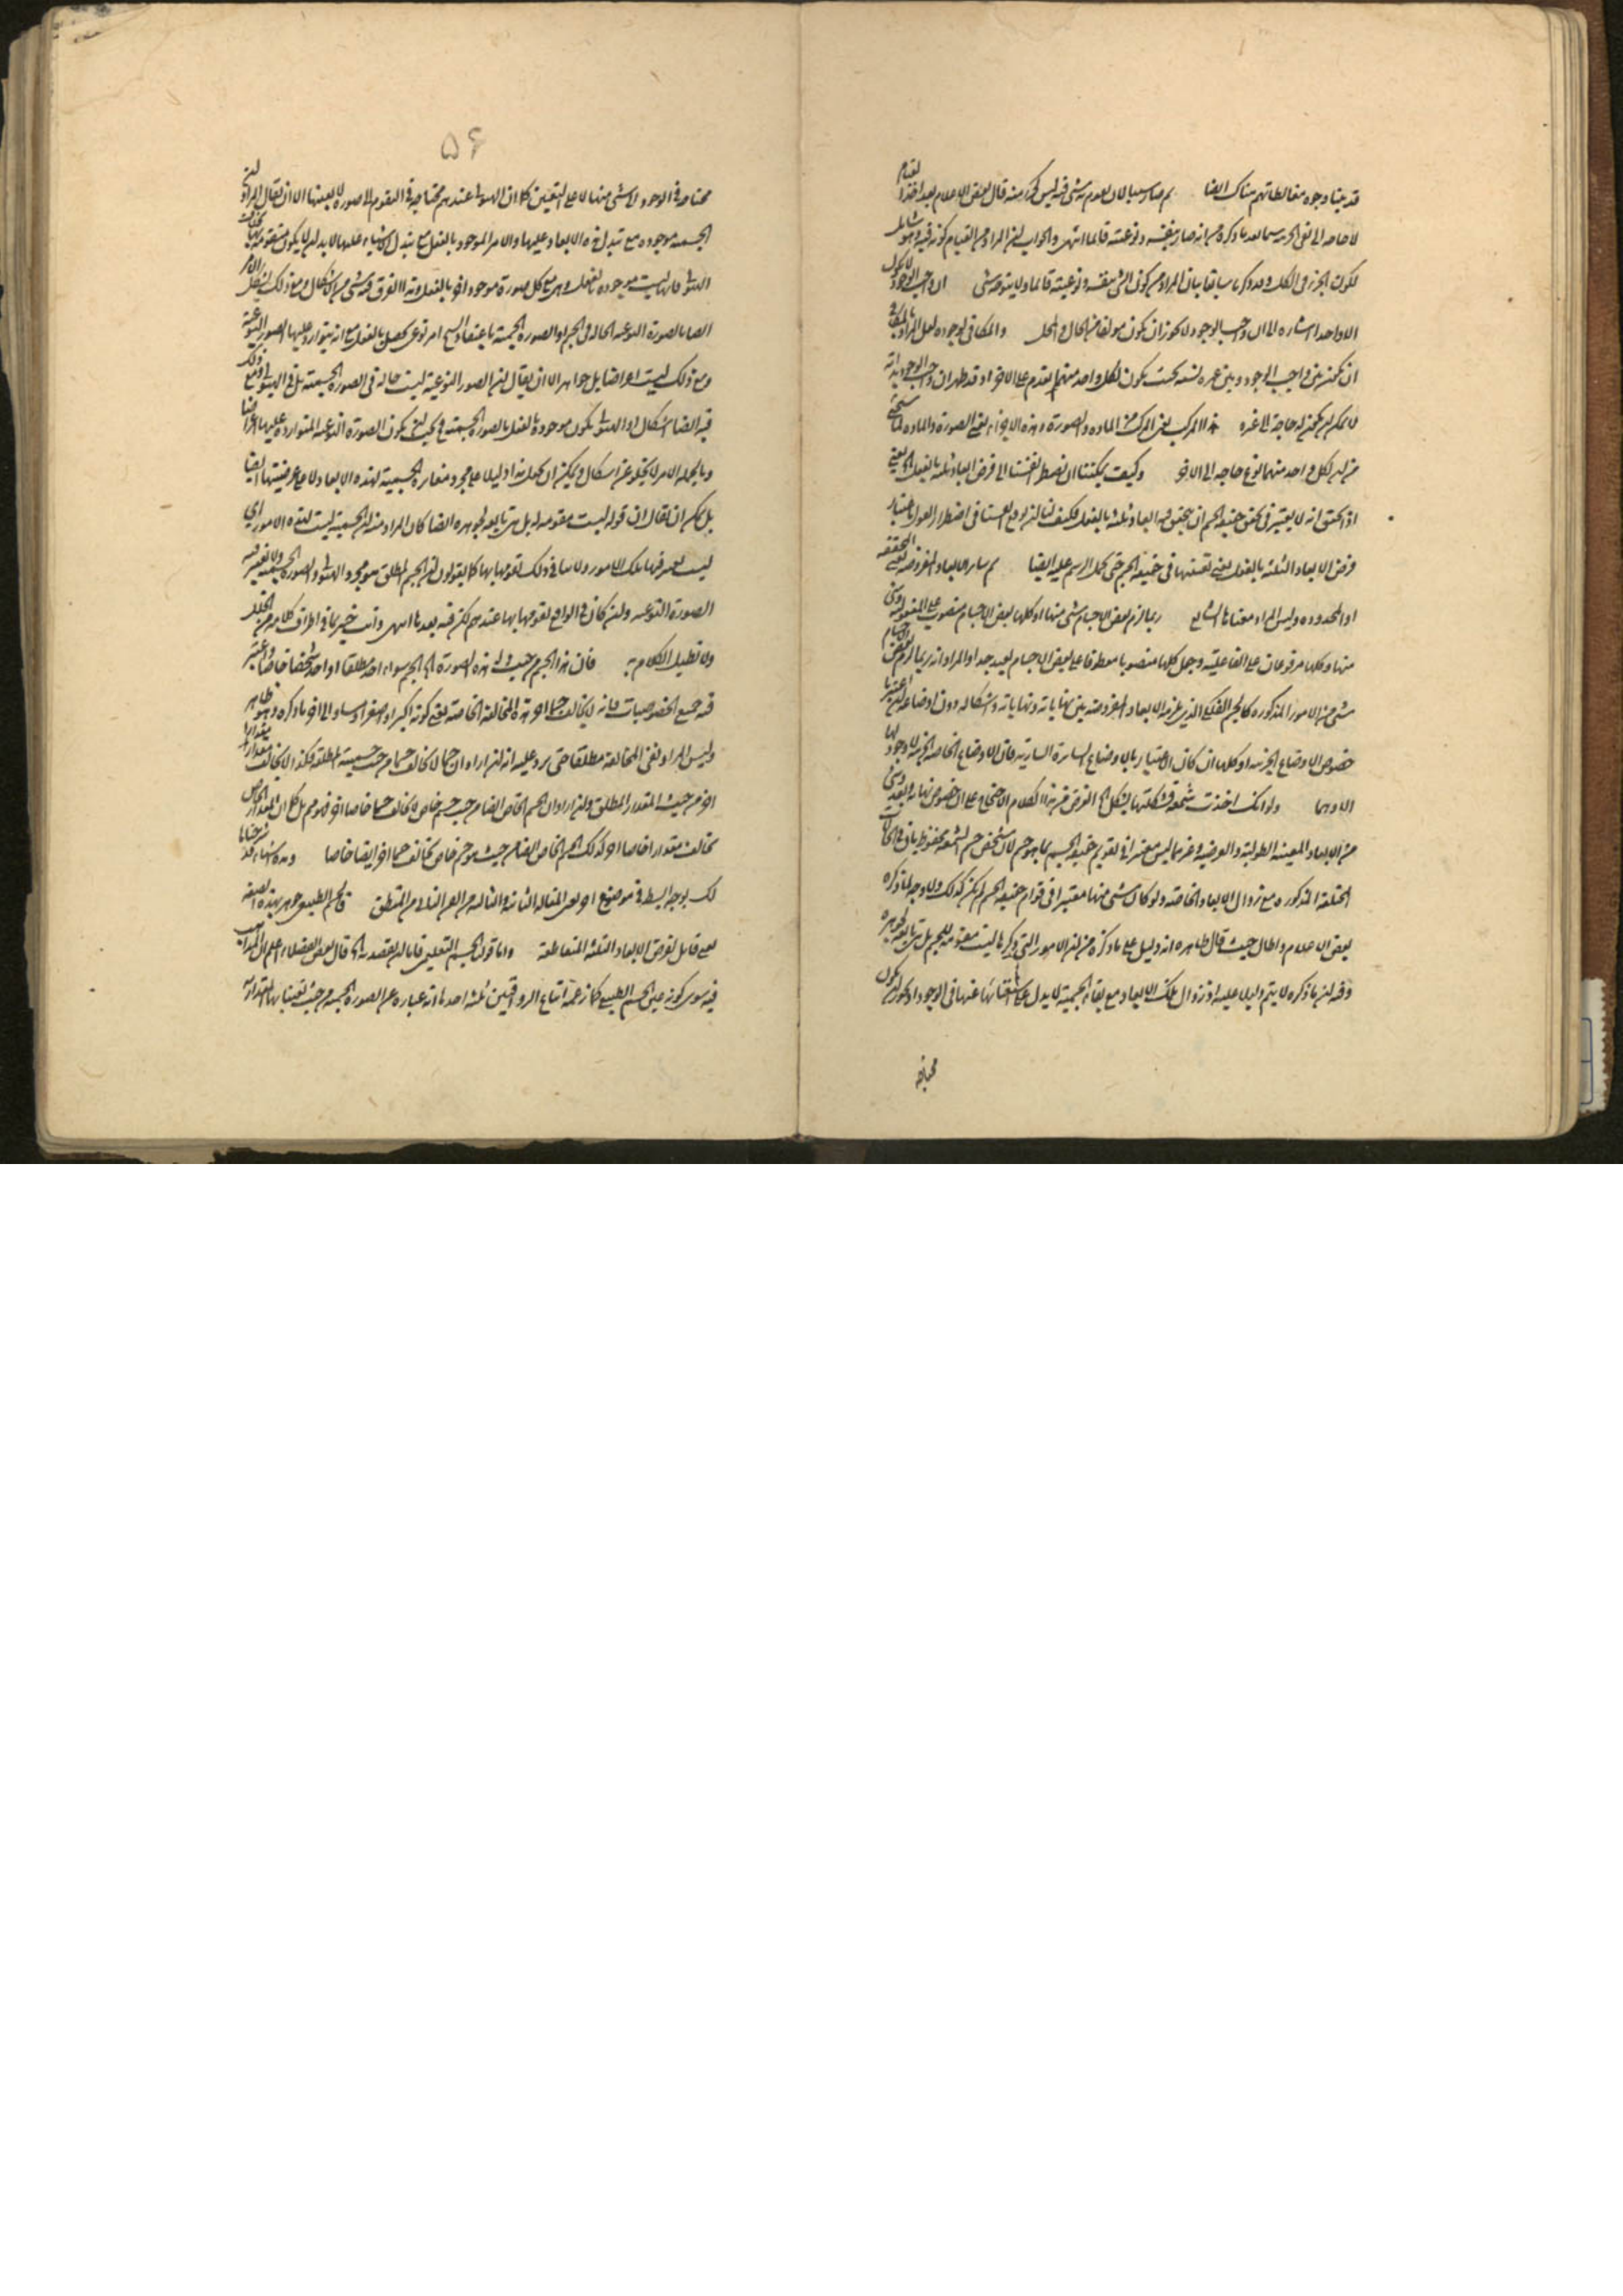 قد بينا وجوه مغالطاتهم هناك ايضا ثم صار سببا لان يقوم به شئ فيه ليس كجزء منه قال بعض الاعلام بعد اخذ القيام
لا حاجة الى نفى الجزئية سيما بعد ما ذكره من انه صار بنفسه ونوعيته قائما انتهى والجواب ان المراد من القيام كونه فيه وهو شامل
لكون الجزء فى الكل وقد ذكر سابقا بيان المراد من كون الشئ بنفسه ونوعيته قائما ولا يتوجه شئ ان واجب الوجود لا يكون
الا واحدا اشارة الى ان واجب الوجود لا يجوز ان يكون مؤلفا من الحال والمحل والمكافى لوجوده لعل المراد بالمكافى
ان يكون بين واجب الوجود وبين غيره نسبة بحيث يكون لكل واحد منهما تقدم على الاخر اذ قد ظهر ان واجب الوجود بذاته
لا يمكن ان يكون له حاجة الى غيره هذا المركب يعنى المركب من المادة والصورة وهذه الاجزاء يعنى الصورة والمادة
من ان لكل واحد منهما نوع حاجة الى الاخر وكيف يمكننا ان نضطر انفسنا الى فرض ابعاد ثلثة بالفعل يعنى
اذا تحقق انه لا يعتبر فى تحقق حقيقة الجسم ان يتحقق فيه ابعاد ثلثة بالفعل فكيف لنا ان نوقع انفسنا فى اضطرار القول باعتبار
فرض الابعاد الثلثة بالفعل يعنى تعينها فى حقيقة الجسم حتى يحمل الرسم عليه ايضا ثم ساير الابعاد المفروضة يعنى المحققة
او المحدودة وليس المراد معناها الشايع ربما لزم بعض الاجسام شئ منها او كلها بعض الاجسام منصوب على المفعولية وشئ
منها وكلها مرفوعان على الفاعلية وجعل كلها منصوبا معطوفا على بعض الاجسام بعيد جدا والمراد انه ربما لزم بعض الاجسام
شئ من الامور المذكورة كالجسم الفلكى الذى يلزمه الابعاد المفروضة بين نهاياته ونهاياته واشكاله دون اوضاعه ان اعتبرنا
خصوص الاوضاع الجزئية او كلها ان كان الاعتبار بالاوضاع السارية فان الاوضاع الخاصة الجزئية لا وجود لها
الا وهما ولو انك اخذت شمعة فشكلتها بشكل الفرض من هذا الكلام الاحتجاج على ان خصوص نهاية والبعد وشئ
من الابعاد المعينة الطولية والعرضية وغيرهما ليس معتبرا فى تقويم حقيقة الجسم بما هو جسم لان شخص جسم الشمعة محفوظ باق فى الحالات
المختلفة المذكورة مع زوال الابعاد الخاصة ولو كان شئ منها معتبرا فى قوام حقيقة الجسم لم يكن كذلك ولا وجه لما ذكره
بعض الاعلام واطال حيث قال ظاهره انه دليل على ما ذكره من ان الامور التى ذكرها ليست مقومة للجسم بل هى تابعة لجوهره
وفيه ان ما ذكره لا يتم دليلا عليه اذ زوال تلك الابعاد مع بقاء الجسمية لا يدل على استغنائها عنها فى الوجود اذ يجوز ان يكون
محتاجة
۵۶
محتاجة فى الوجود الى شئ منها لا على التعيين كما ان الهيولى عندهم محتاجة فى التقوم الى صورة لا بعينها الا ان يقال المراد ان
الجسمية موجودة مع تبدل هذه الابعاد عليها والامر الموجود بالفعل مع تبدل الاشياء عليها لا بد ان لا يكون متقوما بها بخلاف
الهيولى فانها ليست موجودة بالفعل وهى مع كل صورة موجود اخر بالفعل وهذا الفرق فيه شئ من الاشكال ومع ذلك يشكل الامر
ايضا بالصورة النوعية الحالة فى الجسم او الصورة الجسمية باعتقادهم اذ الجسم امر نوعى محصل بالفعل مع انه يتوارد عليها الصور النوعية
ومع ذلك ليست اعراضا بل جواهر الا ان يقال ان الصور النوعية ليست حالة فى الصورة الجسمية بل فى الهيولى ومع ذلك
فيه ايضا اشكال اذ الهيولى يكون موجودة بالفعل بالصورة الجسمية فيجب ان يكون الصورة النوعية المتواردة عليها اعراضا
وبالجملة الامر لا يخلو عن اشكال ويمكن ان يجعل هذا دليلا على مجرد مغايرة الجسمية لهذه الابعاد لا على عرضيتها ايضا
بل يمكن ان يقال ان قوله ليست مقومة له بل هى تابعة لجوهره ايضا كان المراد منه ان الجسمية ليست هذه الامور اى
ليست نفس تلك الامور ولا ينافى ذلك تقومها بها كما يقولون ان الجسم المطلق موجود الهيولى والصورة الجسمية ولا يعتبر فيه
الصورة النوعية وان كان فى الواقع تقومها بها عندهم لكن فيه بعد ما انتهى وانت خبير بما فى اطراف كلامه من الخلل
ولا نطيل الكلام به فان هذا الجسم من حيث له هذه الصورة اى الجسم سواء اخذ مطلقا او اخذ شخصا خاصا واعتبر
فيه جميع الخصوصيات فانه لا يخالف جسما اخر هذه المخالفة الخاصة يعنى كونه اكبر او اصغر او مساو الى اخر ما ذكره وهو ظاهر
وليس المراد نفى المخالفة مطلقا حتى يرد عليه انه ان اراد ان جسما لا يخالف جسما من حيث جسميته المطلقة فكذا لا يخالف مقدار مقدارا
اخر من حيث المقدار المطلق وان اراد ان الجسم الخاص ايضا من حيث جسم خاص لا يخالف جسما خاصا اخر فهو مم بل كما ان المقدار الخاص
يخالف مقدارا خاصا اخر كذلك الجسم الخاص ايضا من حيث هو جسم خاص يخالف جسما اخر ايضا خاصا وهذه اشياء قد شرحناها
لك بوجه ابسط فى موضع اخر يعنى المقالة الثانية والثالثة من الفن الثانى من المنطق فالجسم الطبيعى جوهر بهذه الصفة
يعنى قابل لفرض الابعاد الثلثة المتقاطعة واما قولنا الجسم التعليمى فاما ان يقصد به الخ قال بعض الفضلاء اعلم ان المذاهب
فيه سوى كونه عين الجسم الطبيعى كما زعمه اتباع الرواقيين ثلثة احدها انه عبارة عن الصورة الجسمية من حيث تعيناتها المقدارية